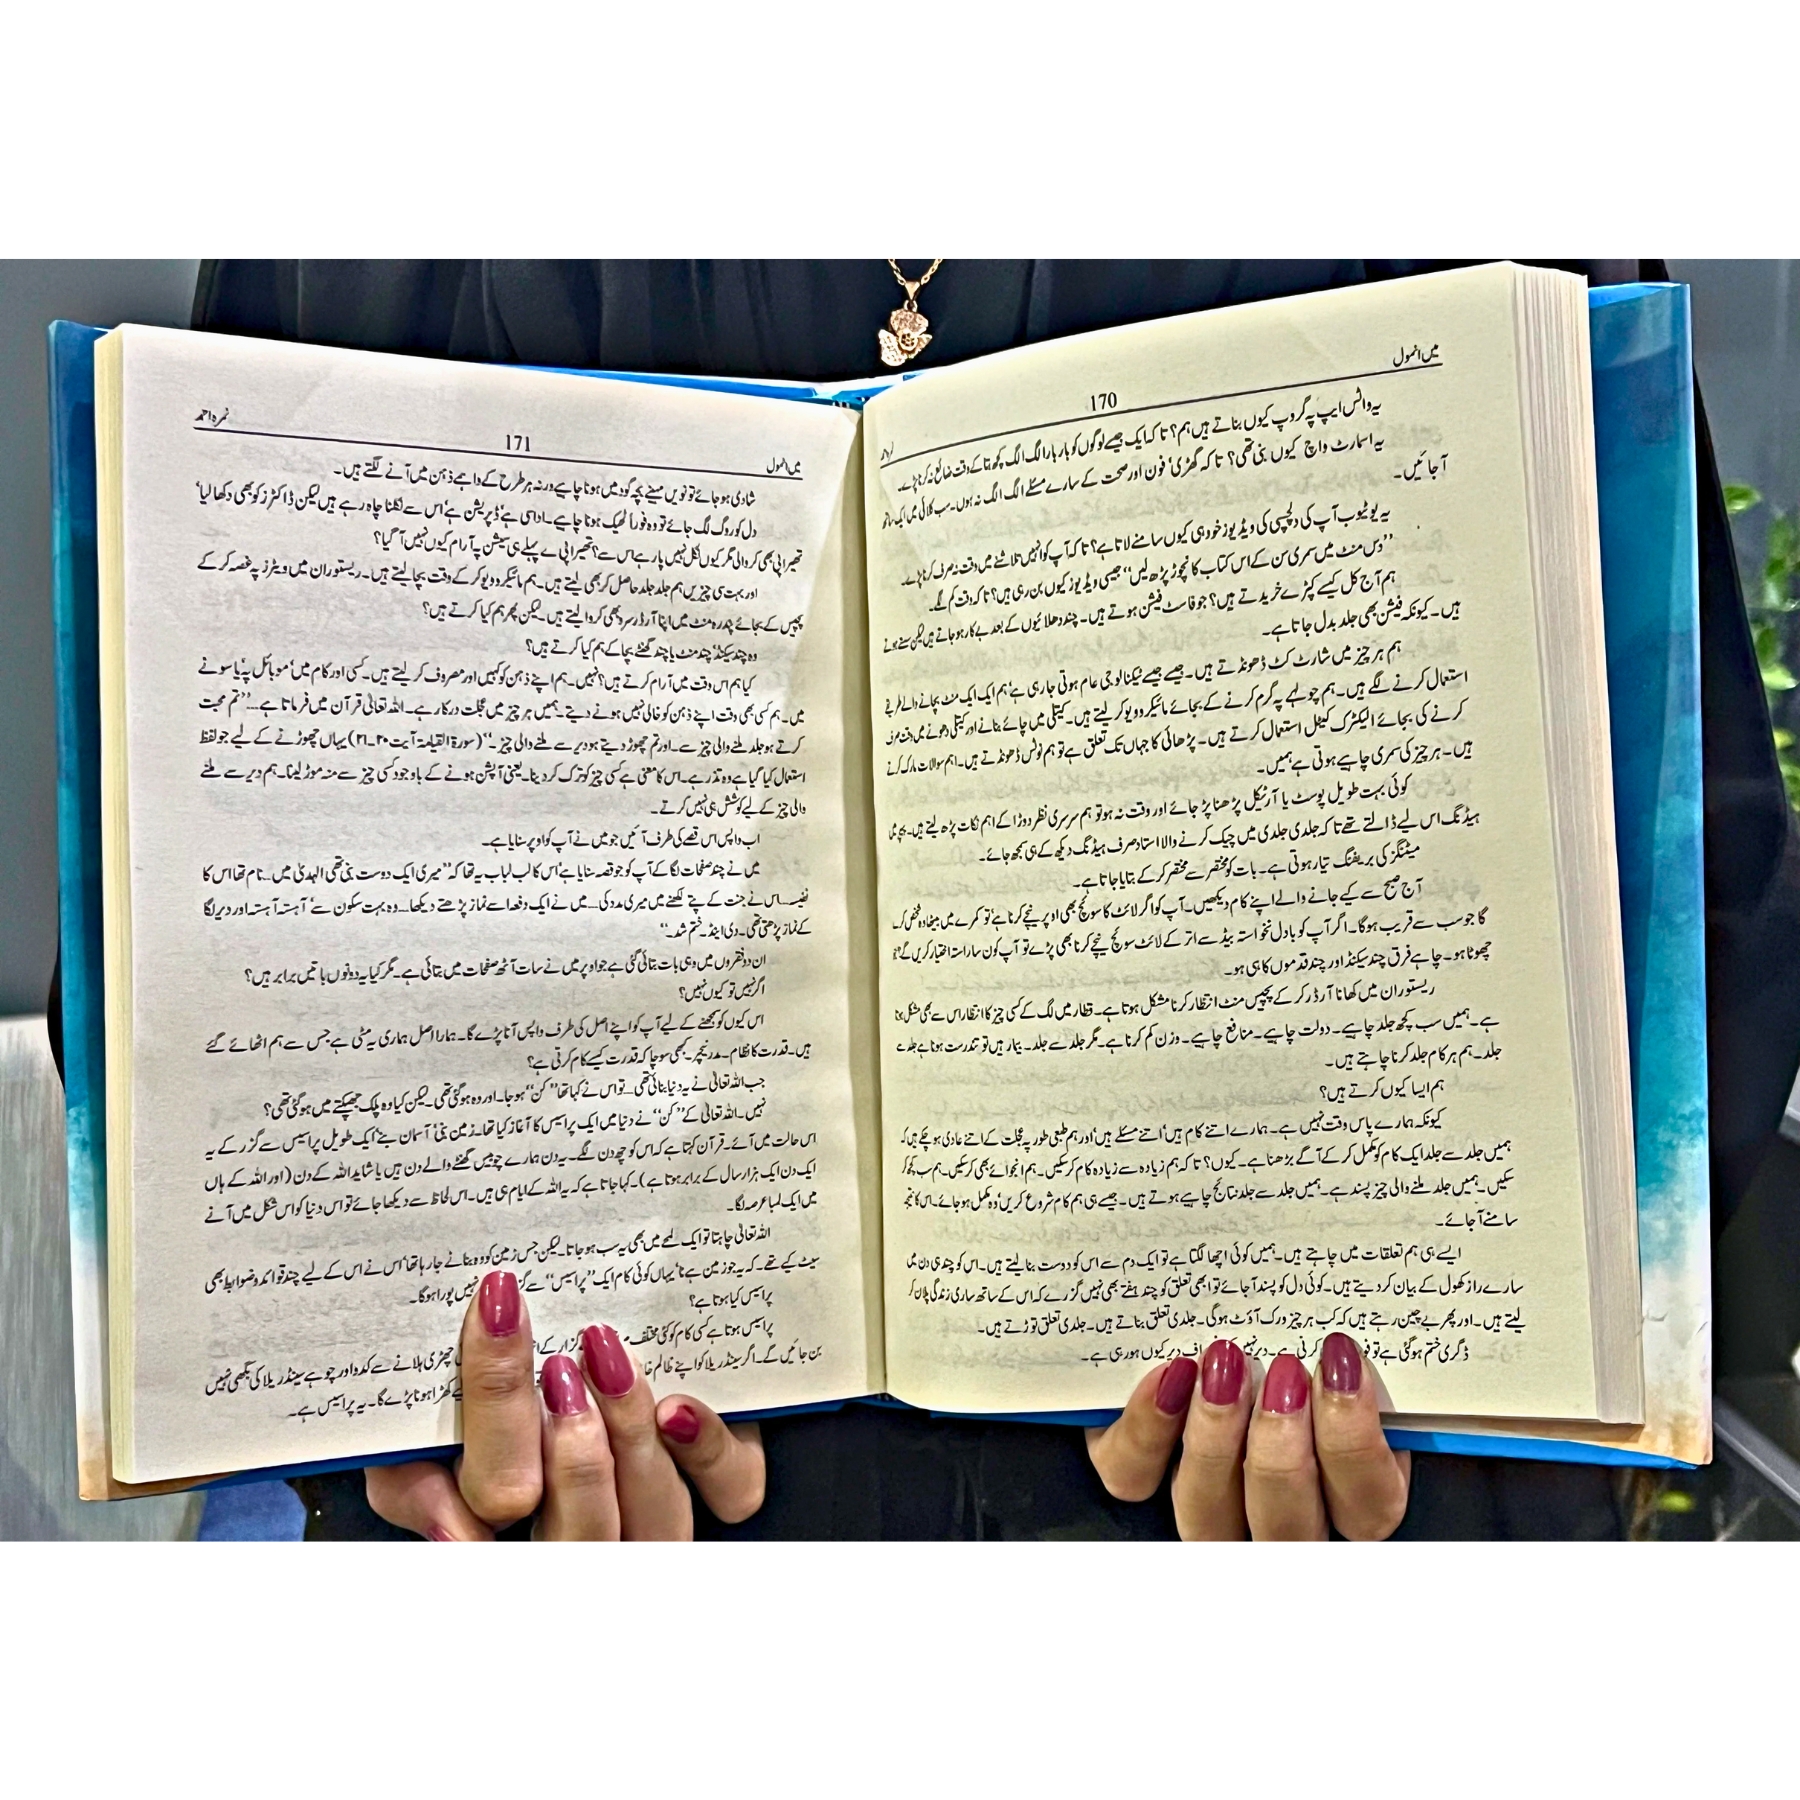 میں انمول
170
یہ واٹس ایپ پہ گروپ کیوں بناتے ہیں ہم؟ تاکہ ایک جیسے لوگوں کو بار بار الگ الگ کچھ بتا کے وقت ضائع نہ کرنا پڑے۔
یہ اسمارٹ واچ کیوں بنی تھی؟ تاکہ گھڑی، فون اور صحت کے سارے مسئلے الگ الگ نہ ہوں۔ سب کلائی میں ایک ساتھ
آجائیں۔
یہ یوٹیوب آپ کی دلچسپی کی ویڈیوز خود ہی کیوں سامنے لاتا ہے؟ تاکہ آپ کو انہیں تلاشنے میں وقت نہ صرف کرنا پڑے۔
”دس منٹ میں سمری سن کے اس کتاب کا نچوڑ پڑھ لیں“ جیسی ویڈیوز کیوں بن رہی ہیں؟ تاکہ وقت کم لگے۔
ہم آج کل کیسے کپڑے خریدتے ہیں؟ جو فاسٹ فیشن ہوتے ہیں۔ چند دھلائیوں کے بعد بے کار ہو جاتے ہیں لیکن سستے ہوتے
ہیں۔ کیونکہ فیشن بھی جلد بدل جاتا ہے۔
ہم ہر چیز میں شارٹ کٹ ڈھونڈتے ہیں۔ جیسے جیسے ٹیکنالوجی عام ہوتی جا رہی ہے، ہم ایک ایک منٹ بچانے والے طریقے
استعمال کرنے لگے ہیں۔ ہم چولہے پہ گرم کرنے کے بجائے مائیکرو ویو کر لیتے ہیں۔ کیتلی میں چائے بنانے اور کیتلی دھونے میں وقت صرف
کرنے کی بجائے الیکٹرک کیٹل استعمال کرتے ہیں۔ پڑھائی کا جہاں تک تعلق ہے تو ہم نوٹس ڈھونڈتے ہیں۔ اہم سوالات مارک کرتے
ہیں۔ ہر چیز کی سمری چاہیے ہوتی ہے ہمیں۔
کوئی بہت طویل پوسٹ یا آرٹیکل پڑھنا پڑ جائے اور وقت نہ ہو تو ہم سرسری نظر دوڑا کے اہم نکات پڑھ لیتے ہیں۔ پیپرز میں
ہیڈنگ اس لیے ڈالتے تھے تاکہ جلدی جلدی میں چیک کرنے والا استاد صرف ہیڈنگ دیکھ کے ہی سمجھ جائے۔
میٹنگز کی بریفنگ تیار ہوتی ہے۔ بات کو مختصر سے مختصر کر کے بتایا جاتا ہے۔
آج صبح سے کیے جانے والے اپنے کام دیکھیں۔ آپ کو اگر لائٹ کا سوئچ بھی اوپر نیچے کرنا ہے، تو کمرے میں بیٹھا وہ شخص کرے
گا جو سب سے قریب ہوگا۔ اگر آپ کو بادل نخواستہ بیڈ سے اتر کے لائٹ سوئچ نیچے کرنا بھی پڑے تو آپ کون سا راستہ اختیار کریں گے؟ جو
چھوٹا ہو۔ چاہے فرق چند سیکنڈ اور چند قدموں کا ہی ہو۔
ریستوران میں کھانا آرڈر کر کے پچیس منٹ انتظار کرنا مشکل ہوتا ہے۔ قطار میں لگ کے کسی چیز کا انتظار اس سے بھی مشکل ہوتا
ہے۔ ہمیں سب کچھ جلد چاہیے۔ دولت چاہیے۔ منافع چاہیے۔ وزن کم کرنا ہے۔ مگر جلد سے جلد۔ بیمار ہیں تو تندرست ہونا ہے جلد سے
جلد۔ ہم ہر کام جلد کرنا چاہتے ہیں۔
ہم ایسا کیوں کرتے ہیں؟
کیونکہ ہمارے پاس وقت نہیں ہے۔ ہمارے اتنے کام ہیں، اتنے مسئلے ہیں، اور ہم طبعی طور پہ عجلت کے اتنے عادی ہو چکے ہیں کہ
ہمیں جلد سے جلد ایک کام کو مکمل کر کے آگے بڑھنا ہے۔ کیوں؟ تاکہ ہم زیادہ سے زیادہ کام کر سکیں۔ ہم انجوائے بھی کر سکیں۔ ہم سب کچھ کر
سکیں۔ ہمیں جلد ملنے والی چیز پسند ہے۔ ہمیں جلد سے جلد نتائج چاہیے ہوتے ہیں۔ جیسے ہی ہم کام شروع کریں، وہ مکمل ہو جائے۔ اس کا نتیجہ
سامنے آجائے۔
ایسے ہی ہم تعلقات میں چاہتے ہیں۔ ہمیں کوئی اچھا لگتا ہے تو ایک دم سے اس کو دوست بنا لیتے ہیں۔ اس کو چند ہی دن میں
سارے راز کھول کے بیان کر دیتے ہیں۔ کوئی دل کو پسند آجائے تو ابھی تعلق کو چند ہفتے بھی نہیں گزرے کہ اس کے ساتھ ساری زندگی پلان کر
لیتے ہیں۔ اور پھر بے چین رہتے ہیں کہ کب ہر چیز ورک آؤٹ ہوگی۔ جلدی تعلق بناتے ہیں۔ جلدی تعلق توڑتے ہیں۔
ڈگری ختم ہو گئی ہے تو کرنی ہے۔ دیر نہیں اف دیر کیوں ہو رہی ہے۔
میں انمول
171
نمرہ احمد
شادی ہو جائے تو نویں مہینے بچہ گود میں ہونا چاہیے ورنہ ہر طرح کے واہمے ذہن میں آنے لگتے ہیں۔
دل کو روگ لگ جائے تو وہ فوراً ٹھیک ہونا چاہیے۔ اداسی ہے، ڈپریشن ہے، اس سے نکلنا چاہ رہے ہیں لیکن ڈاکٹرز کو بھی دکھا لیا،
تھیراپی بھی کروالی مگر کیوں نکل نہیں پا رہے اس سے؟ تھیراپی کے پہلے ہی سیشن پہ آرام کیوں نہیں آ گیا؟
اور بہت سی چیزیں ہم جلد جلد حاصل کر بھی لیتے ہیں۔ ہم مائیکرو ویو کر کے وقت بچا لیتے ہیں۔ ریستوران میں ویٹرز پہ غصہ کر کے
پچیس کے بجائے پندرہ منٹ میں اپنا آرڈر سرو بھی کروا لیتے ہیں۔ لیکن پھر ہم کیا کرتے ہیں؟
وہ چند سیکنڈ، چند منٹ یا چند گھنٹے بچا کے ہم کیا کرتے ہیں؟
کیا ہم اس وقت میں آرام کرتے ہیں؟ نہیں۔ ہم اپنے ذہن کو کہیں اور مصروف کر لیتے ہیں۔ کسی اور کام میں، موبائل پہ، یا سونے
میں۔ ہم کسی بھی وقت اپنے ذہن کو خالی نہیں ہونے دیتے۔ ہمیں ہر چیز میں عجلت درکار ہے۔ اللہ تعالیٰ قرآن میں فرماتا ہے... ”تم محبت
کرتے ہو جلد ملنے والی چیز سے۔ اور تم چھوڑ دیتے ہو دیر سے ملنے والی چیز۔“ (سورۃ القیامۃ آیت ۲۰۔۲۱) یہاں چھوڑنے کے لیے جو لفظ
استعمال کیا گیا ہے وہ تذر ہے۔ اس کا معنی ہے کسی چیز کو ترک کر دینا۔ یعنی آپشن ہونے کے باوجود کسی چیز سے منہ موڑ لینا۔ ہم دیر سے ملنے
والی چیز کے لیے کوشش ہی نہیں کرتے۔
اب واپس اس قصے کی طرف آئیں جو میں نے آپ کو اوپر سنایا ہے۔
میں نے چند صفحات لگا کے آپ کو جو قصہ سنایا ہے، اس کا لب لباب یہ تھا کہ ”میری ایک دوست بنی تھی الہدیٰ میں... نام تھا اس کا
نفیسہ۔ اس نے جنت کے پتے لکھنے میں میری مدد کی... میں نے ایک دفعہ اسے نماز پڑھتے دیکھا... وہ بہت سکون سے، آہستہ آہستہ اور دیر لگا
کے نماز پڑھتی تھی۔ دی اینڈ۔ ختم شد۔“
ان دو فقروں میں وہی بات بتائی گئی ہے جو اوپر میں نے سات آٹھ صفحات میں بتائی ہے۔ مگر کیا یہ دونوں باتیں برابر ہیں؟
اگر نہیں تو کیوں نہیں؟
اس کیوں کو سمجھنے کے لیے آپ کو اپنے اصل کی طرف واپس آنا پڑے گا۔ ہمارا اصل ہماری یہ مٹی ہے جس سے ہم اٹھائے گئے
ہیں۔ قدرت کا نظام۔ مدر نیچر۔ کبھی سوچا کہ قدرت کیسے کام کرتی ہے؟
جب اللہ تعالیٰ نے یہ دنیا بنائی تھی... تو اس نے کہا تھا ”کن“ ہو جا۔ اور وہ ہو گئی تھی۔ لیکن کیا وہ پلک جھپکتے میں ہو گئی تھی؟
نہیں۔ اللہ تعالیٰ کے ”کن“ نے دنیا میں ایک پراسیس کا آغاز کیا تھا۔ زمین بنی، آسمان بنے، ایک طویل پراسیس سے گزر کے یہ
اس حالت میں آئے۔ قرآن کہتا ہے کہ اس کو چھ دن لگے۔ یہ دن ہمارے چوبیس گھنٹے والے دن ہیں یا شاید اللہ کے دن (اور اللہ کے ہاں
ایک دن ایک ہزار سال کے برابر ہوتا ہے)۔ کہا جاتا ہے کہ یہ اللہ کے ایام ہی ہیں۔ اس لحاظ سے دیکھا جائے تو اس دنیا کو اس شکل میں آنے
میں ایک لمبا عرصہ لگا۔
اللہ تعالیٰ چاہتا تو ایک لمحے میں بھی یہ سب ہو جاتا۔ لیکن جس زمین کو وہ بنانے جا رہا تھا، اس نے اس کے لیے چند قوائد و ضوابط بھی
سیٹ کیے تھے۔ کہ یہ جو زمین ہے نا، یہاں کوئی کام ایک ”پراسیس“ سے نہیں پورا ہوگا۔
پراسیس کیا ہوتا ہے؟
پراسیس ہوتا ہے کسی کام کو کئی مختلف گزار کے چھڑی ہلانے سے کدو اور چوہے سینڈریلا کی بگھی نہیں
بن جائیں گے۔ اگر سینڈریلا کو اپنے ظالم کھڑا ہونا پڑے گا۔ یہ پراسیس ہے۔